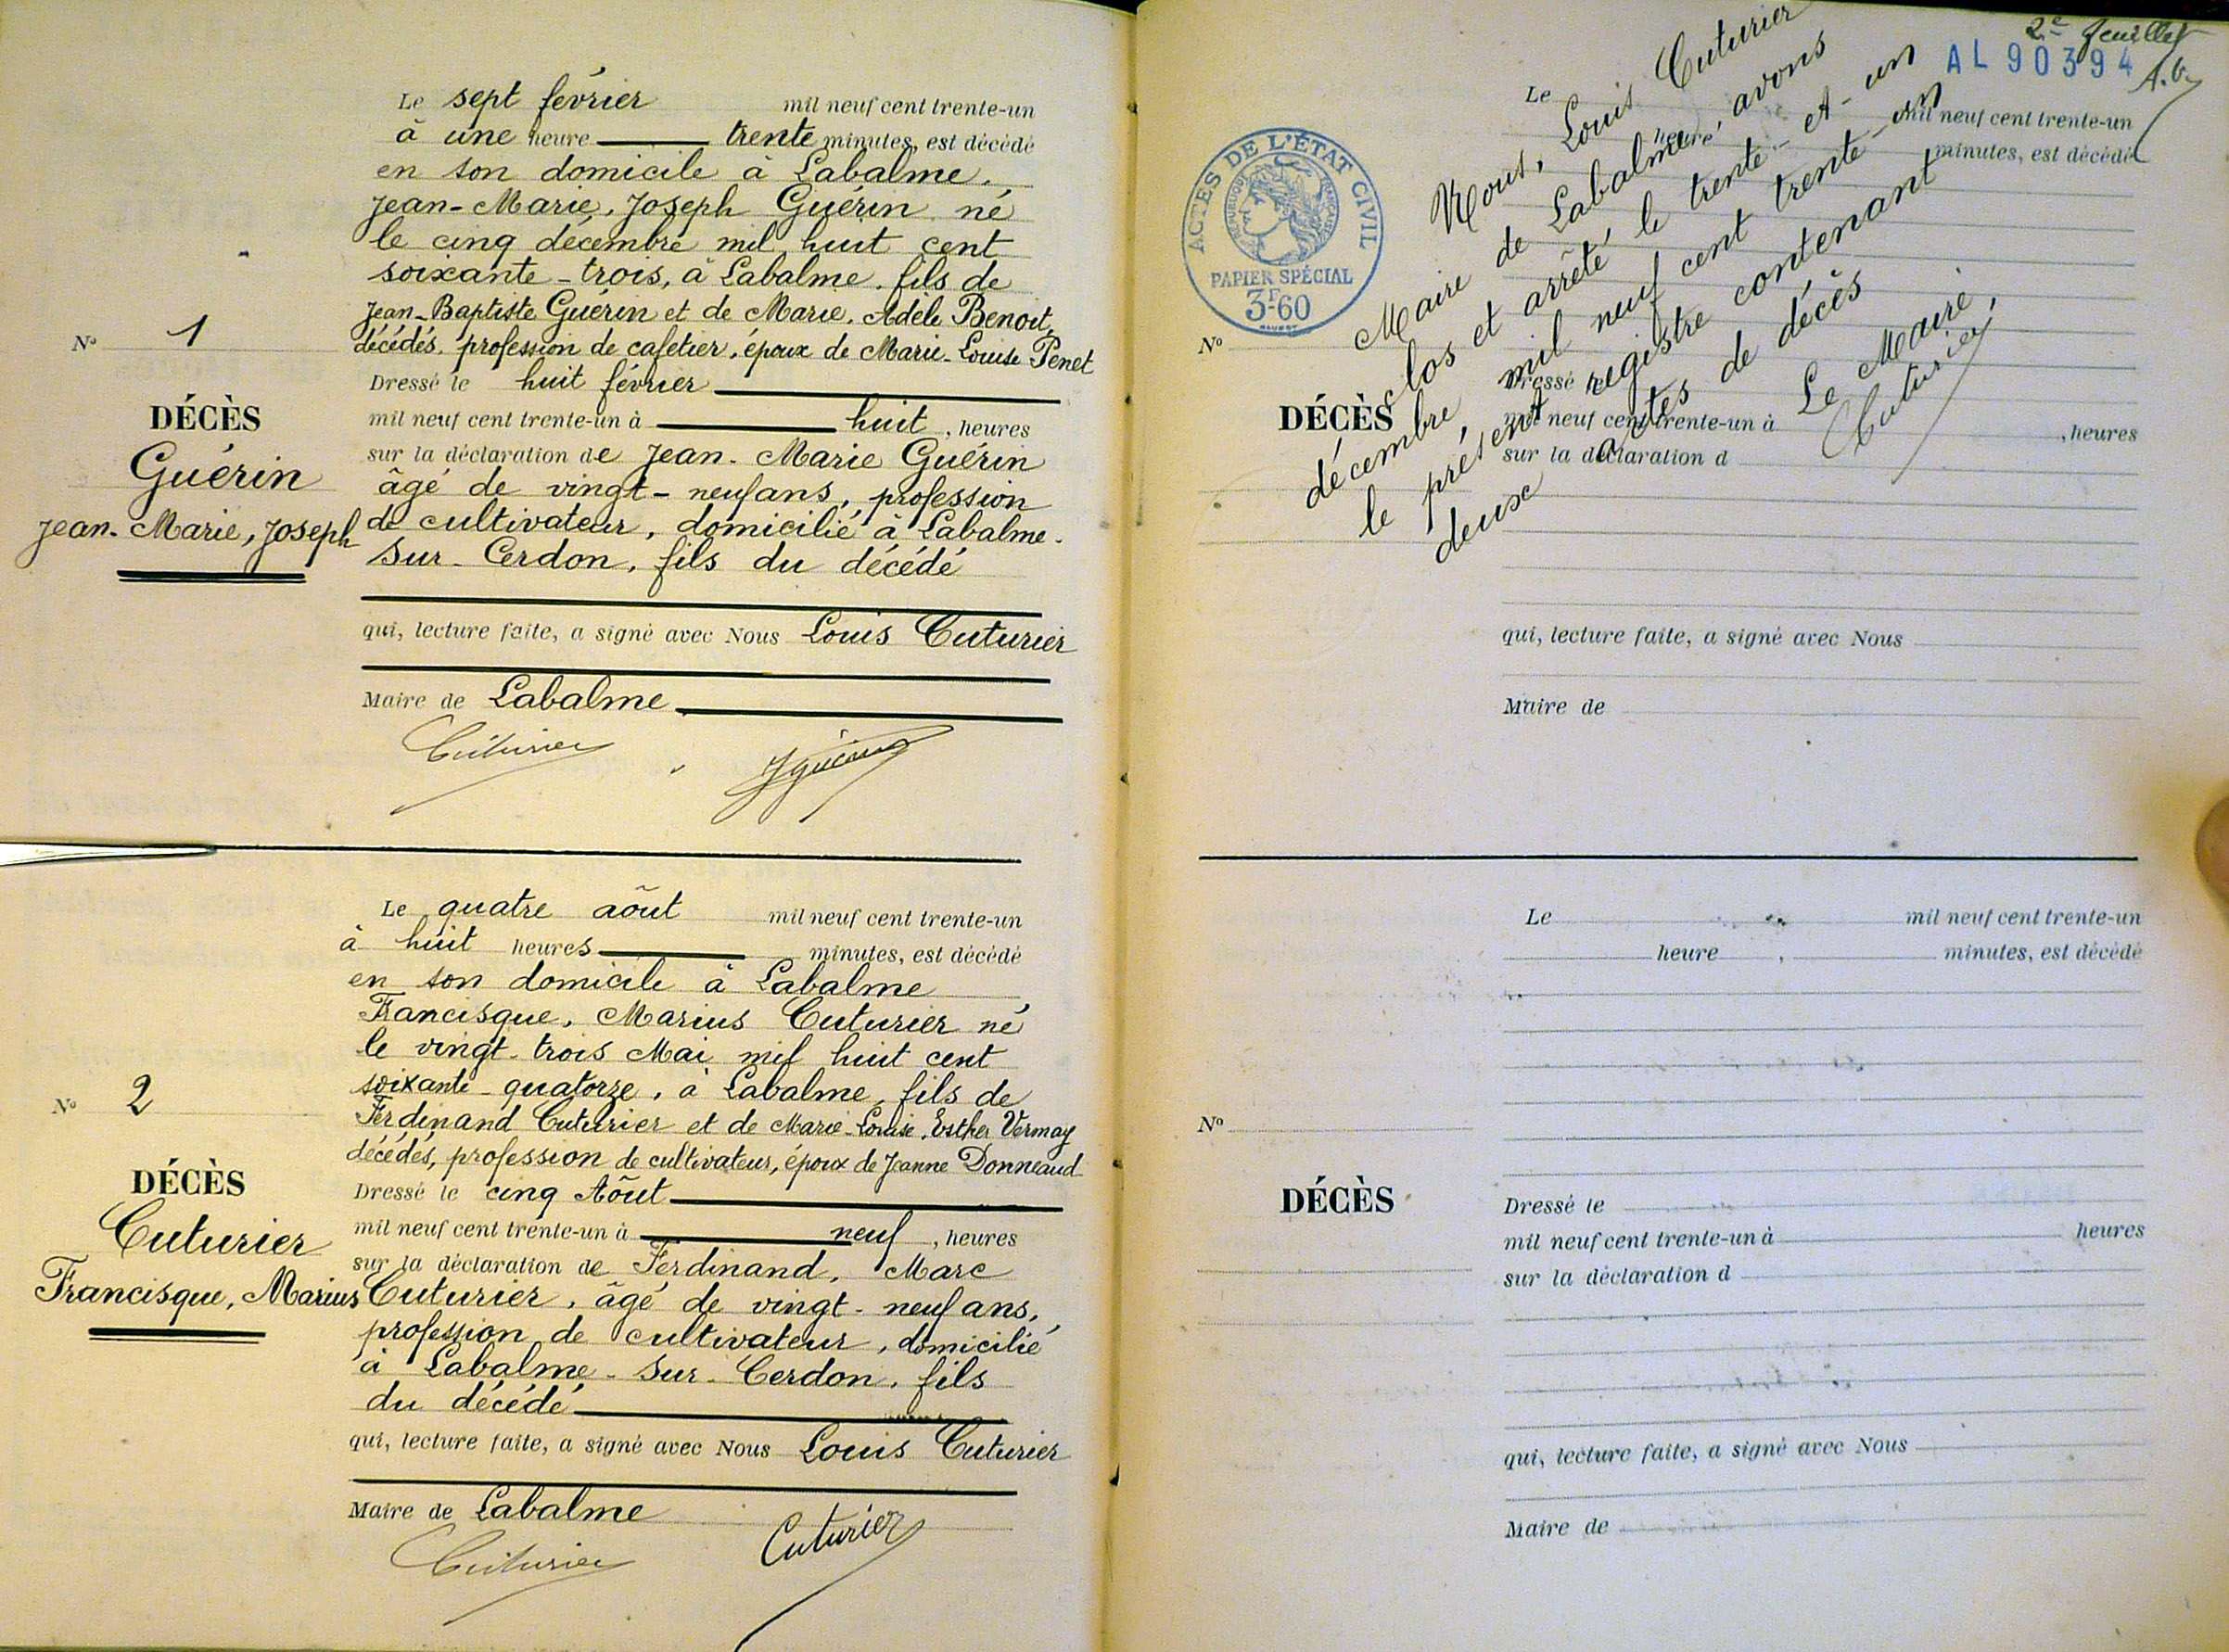 Le sept février mil neuf cent trente-un
à une heure trente minutes, est décédé
en son domicile à Labalme.
Jean-Marie, Joseph Guérin né
le cinq décembre mil huit cent
soixante-trois, à Labalme, fils de
Jean-Baptiste Guérin et de Marie, Adèle Benoit,
décédés, profession de cafetier, époux de Marie-Louise Penet
Nº 1
Dressé le huit février
mil neuf cent trente-un à huit, heures
DÉCÈS
Guérin
Jean-Marie, Joseph
sur la déclaration de Jean-Marie Guérin
âgé de vingt-neuf ans, profession
de cultivateur, domicilié à Labalme-
Sur-Cerdon, fils du décédé
qui, lecture faite, a signé avec Nous Louis Cuturier
Maire de Labalme
Cuturier
Le quatre août mil neuf cent trente-un
à huit heures minutes, est décédé
en son domicile à Labalme
Francisque, Marius Cuturier né
le vingt-trois Mai mil huit cent
soixante-quatorze, à Labalme, fils de
Ferdinand Cuturier et de Marie-Louise, Esther Vermay
décédés, profession de cultivateur, époux de Jeanne Donneaud
Nº 2
Dressé le cinq Aôut
mil neuf cent trente-un à neuf, heures
DÉCÈS
Cuturier
Francisque, Marius
sur la déclaration de Ferdinand, Marc
Cuturier, âgé de vingt-neuf ans,
profession de cultivateur, domicilié
à Labalme-Sur-Cerdon, fils
du décédé
qui, lecture faite, a signé avec Nous Louis Cuturier
Maire de Labalme
Cuturier Cuturier
2e feuillet
AL 90394
ACTES DE L'ÉTAT CIVIL
RÉPUBLIQUE FRANÇAISE
PAPIER SPÉCIAL
3F-60
Nous, Louis Cuturier
Maire de Labalme, avons
clos et arrêté le trente-et-un
décembre, mil neuf cent trente-un
le présent registre contenant
deux actes de décès
Le Maire,
Cuturier
Le mil neuf cent trente-un
heure minutes, est décédé
Nº
Dressé le
DÉCÈS
mil neuf cent trente-un à , heures
sur la déclaration d
qui, lecture faite, a signé avec Nous
Maire de
Le mil neuf cent trente-un
heure , minutes, est décédé
Nº
DÉCÈS
Dressé le
mil neuf cent trente-un à heures
sur la déclaration d
qui, lecture faite, a signé avec Nous
Maire de